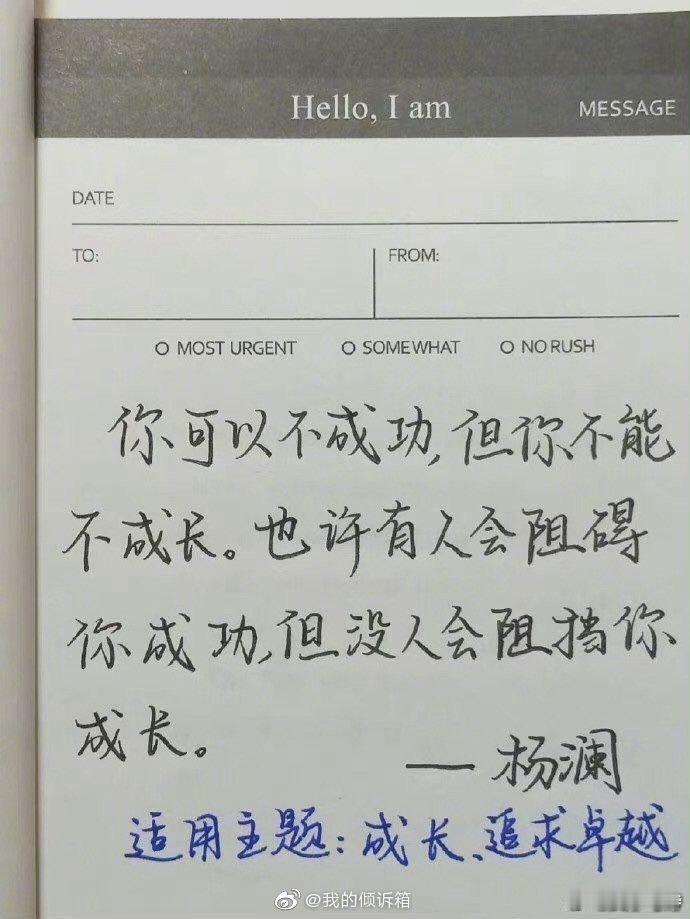 Hello, I am MESSAGE
DATE
TO: FROM:
O MOST URGENT O SOMEWHAT O NO RUSH
你可以不成功,但你不能
不成长。也许有人会阻碍
你成功,但没人会阻挡你
成长。
— 杨澜
适用主题:成长、追求卓越
@我的倾诉箱